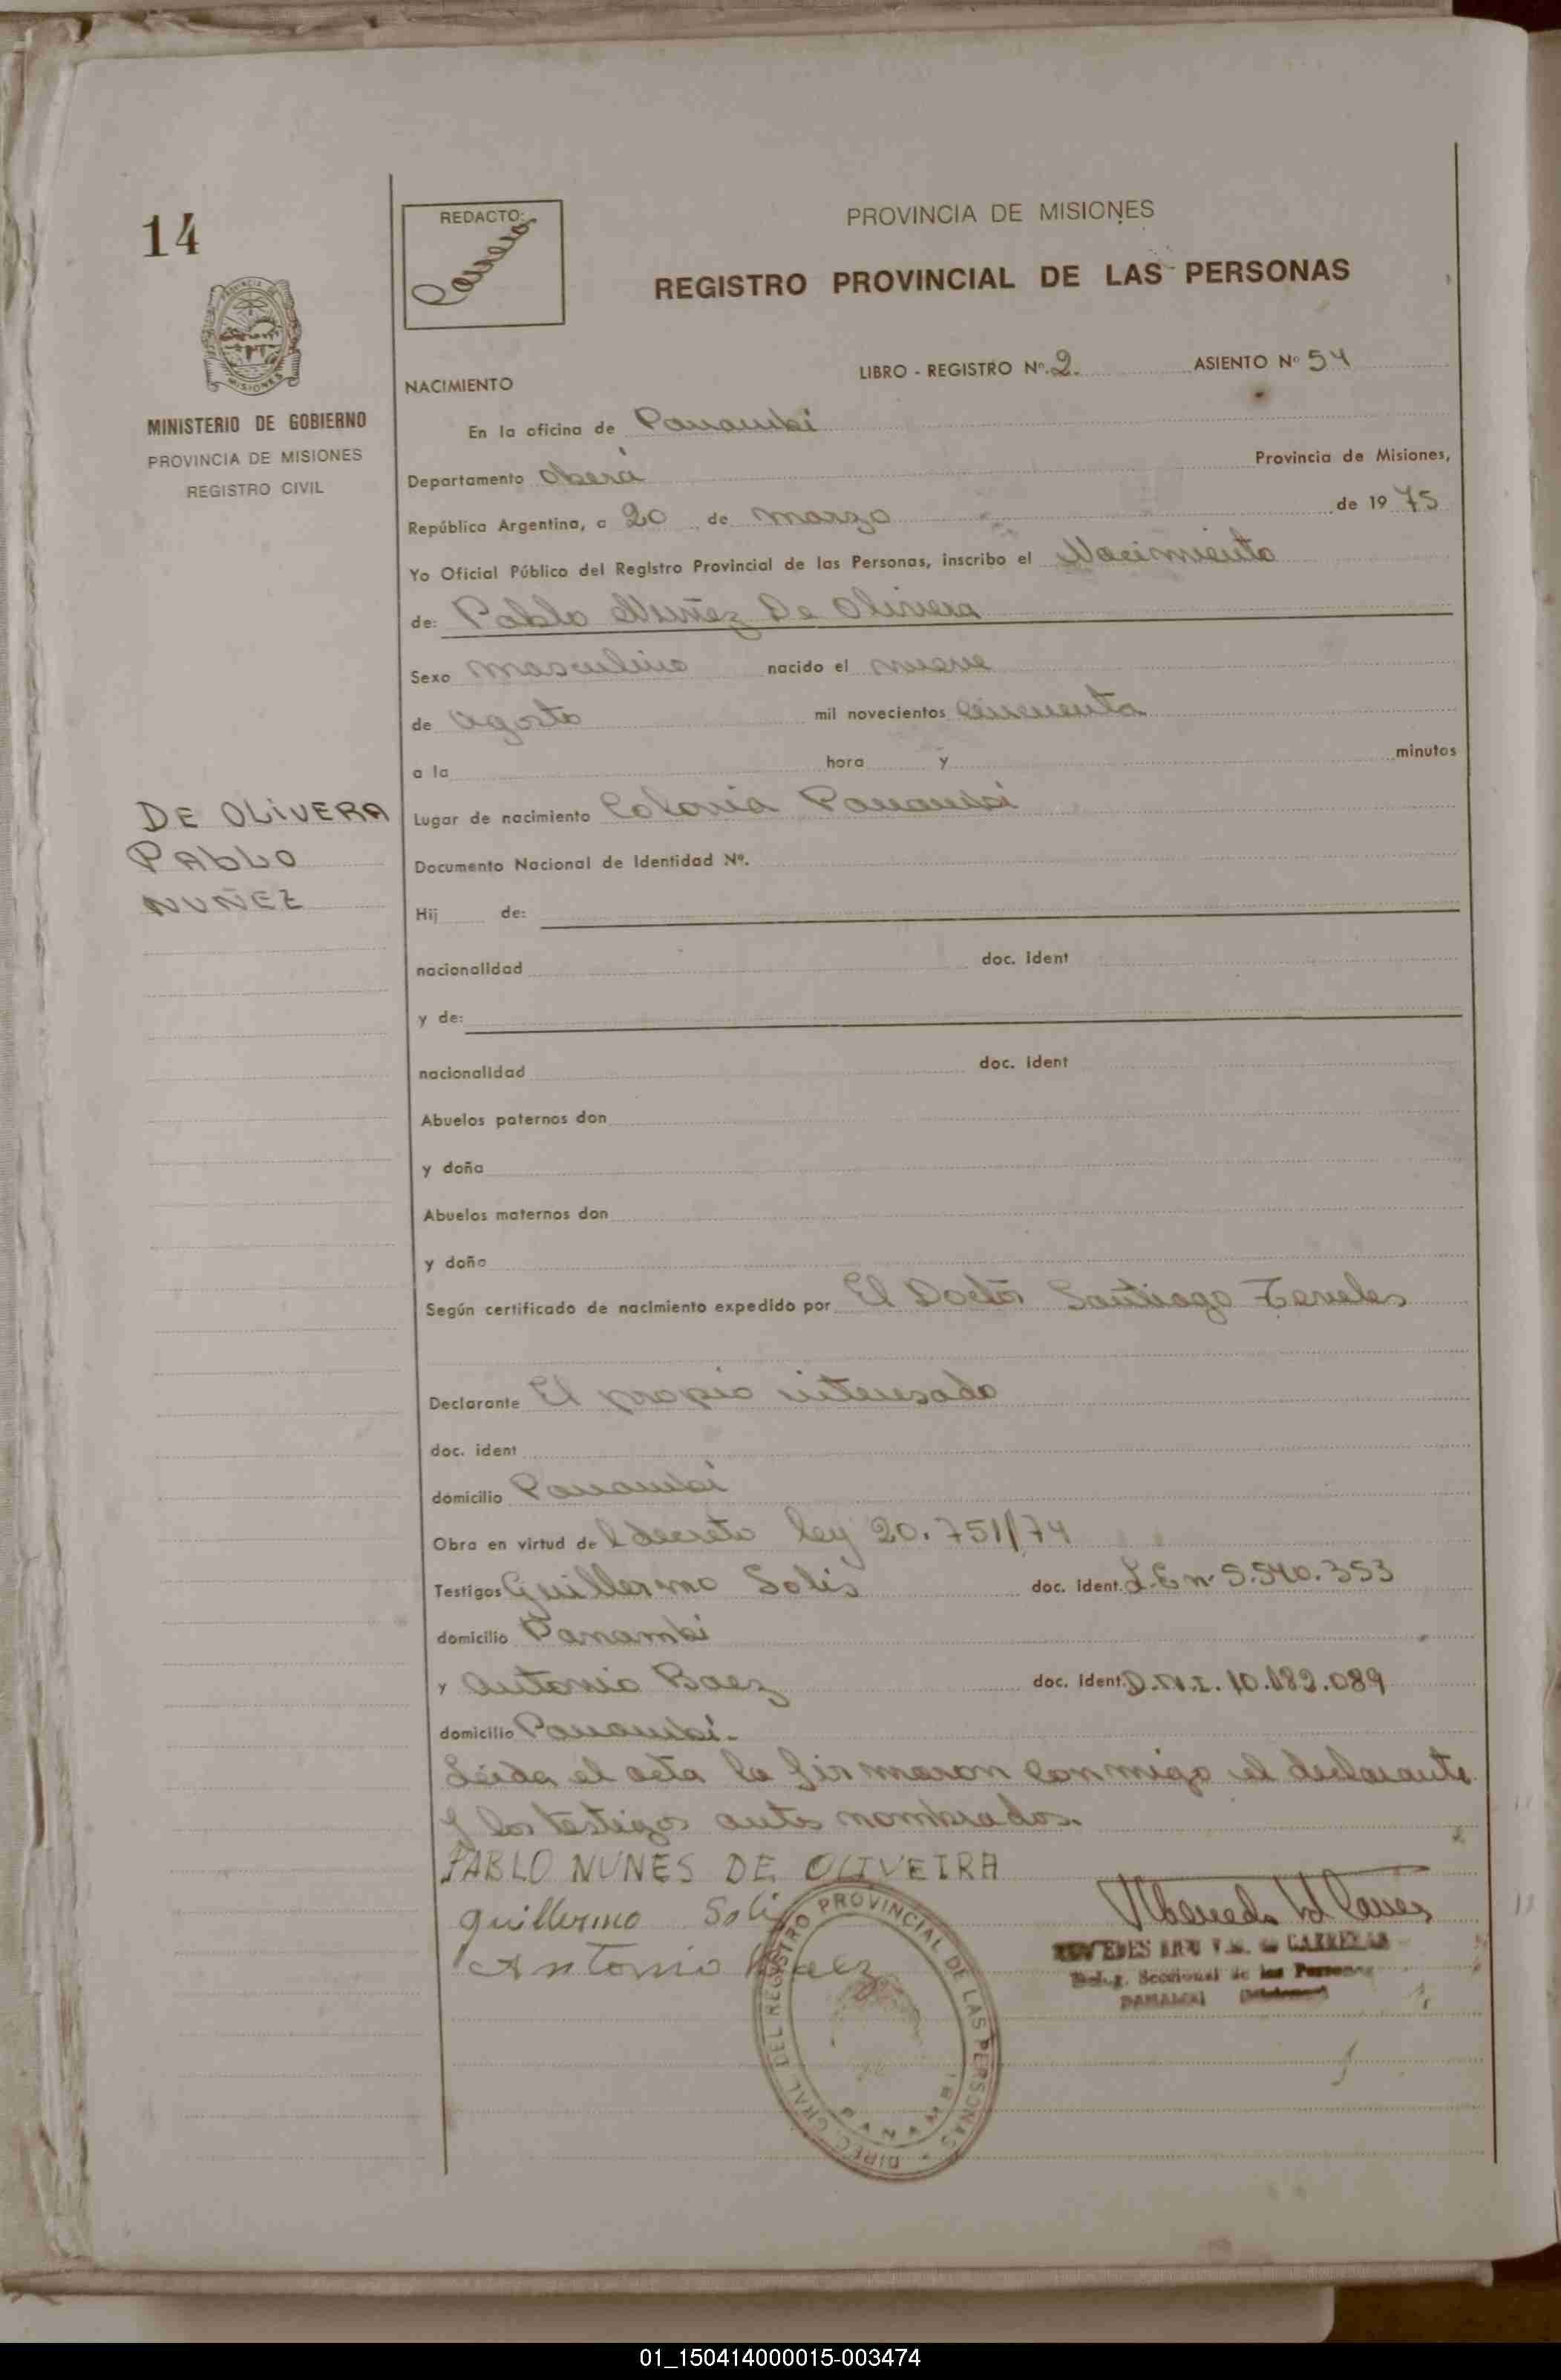 14
REDACTO:
PROVINCIA DE MISIONES
REGISTRO PROVINCIAL DE LAS PERSONAS
MINISTERIO DE GOBIERNO
PROVINCIA DE MISIONES
REGISTRO CIVIL
NACIMIENTO
LIBRO - REGISTRO Nº. 2. ASIENTO Nº 54
En la oficina de Panambi
Departamento Oberá Provincia de Misiones,
República Argentina, a 20 de marzo de 1975
Yo Oficial Público del Registro Provincial de las Personas, inscribo el Nacimiento
de: Pablo Nuñez De Olivera
Sexo masculino nacido el nueve
de agosto mil novecientos cincuenta
a la hora y minutos
DE OLIVERA
PABLO
NUÑEZ
Lugar de nacimiento Colonia Panambi
Documento Nacional de Identidad Nº.
Hij de:
nacionalidad doc. ident
y de:
nacionalidad doc. ident
Abuelos paternos don
y doña
Abuelos maternos don
y doña
Según certificado de nacimiento expedido por El Doctor Santiago
Declarante El propio interesado
doc. ident
domicilio Panambi
Obra en virtud de l decreto ley 20.751/74
Testigos Guillermo Solis doc. ident. L.E nº 5.540.353
domicilio Panambi
y Antonio Baez doc. ident. D.N.I. 10.182.089
domicilio Panambi.
Leida el acta la firmaron conmigo el declarante
y los testigos antes nombrados.
PABLO NUNES DE OLIVEIRA
Guillermo Soli
Antonio Baez
DIREC. GRAL. DEL REGISTRO PROVINCIAL DE LAS PERSONAS
PANAMBI
V.M. de CARRERAS
Deleg. Seccional de las Personas
PANAMBI (Misiones)
01_150414000015-003474